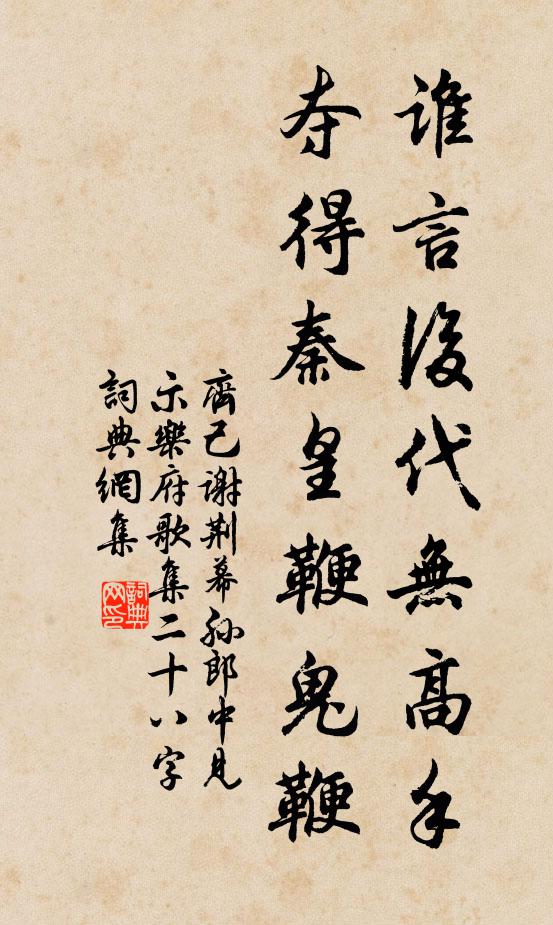 誰言後代無高手
夺得秦皇鞭鬼鞭
齊己谢荆幕孙郎中見
示樂府歌集二十八字
詞典網集
詞典
网印